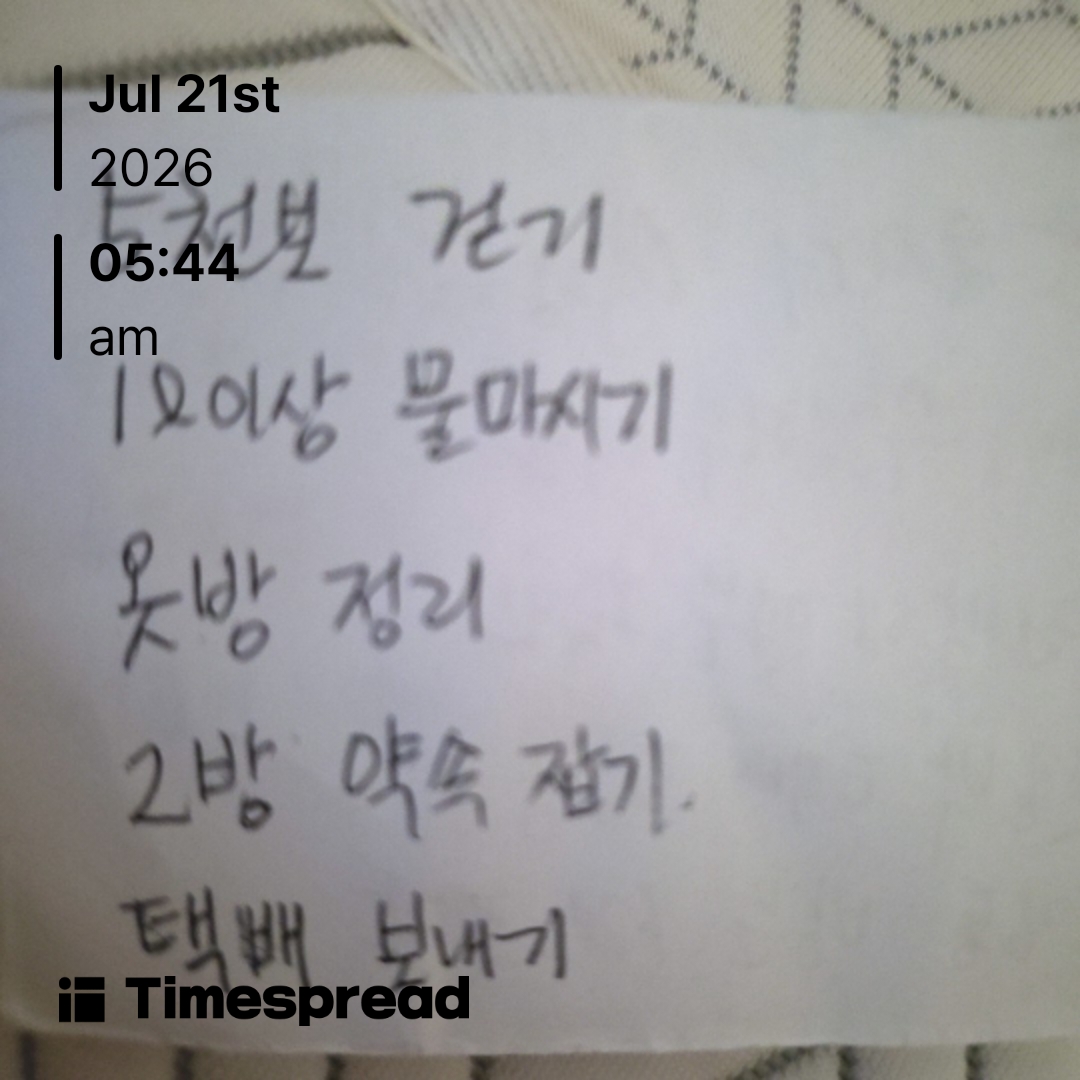 Jul 21st
2026
5천보 걷기
05:44
am
1l이상 물마시기
옷방 정리
2방 약속 잡기.
택배 보내기
Timespread